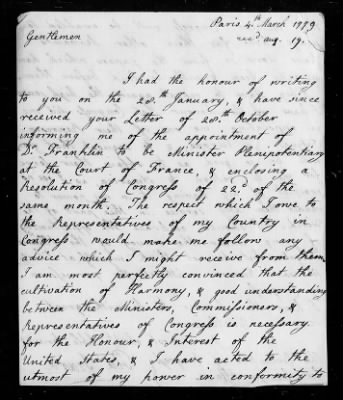 Paris 4th March 1779
recd aug. 19.
Gentlemen
I had the honour of writing
to you on the 28th January, & have since
received your Letter of 28th October
informing me of the appointment of
Dr Franklin to be Minister Plenipotentiary
at the Court of France, & enclosing a
Resolution of Congress of 22d of the
same month. The respect which I owe to
the Representatives of my Country in
Congress would make me follow any
advice which I might receive from them.
I am most perfectly convinced that the
cultivation of Harmony, & good understanding
between the Ministers, Commissioners, &
Representatives of Congress is necessary
for the Honour, & Interest of the
United States, & I have acted to the
utmost of my power in conformity to